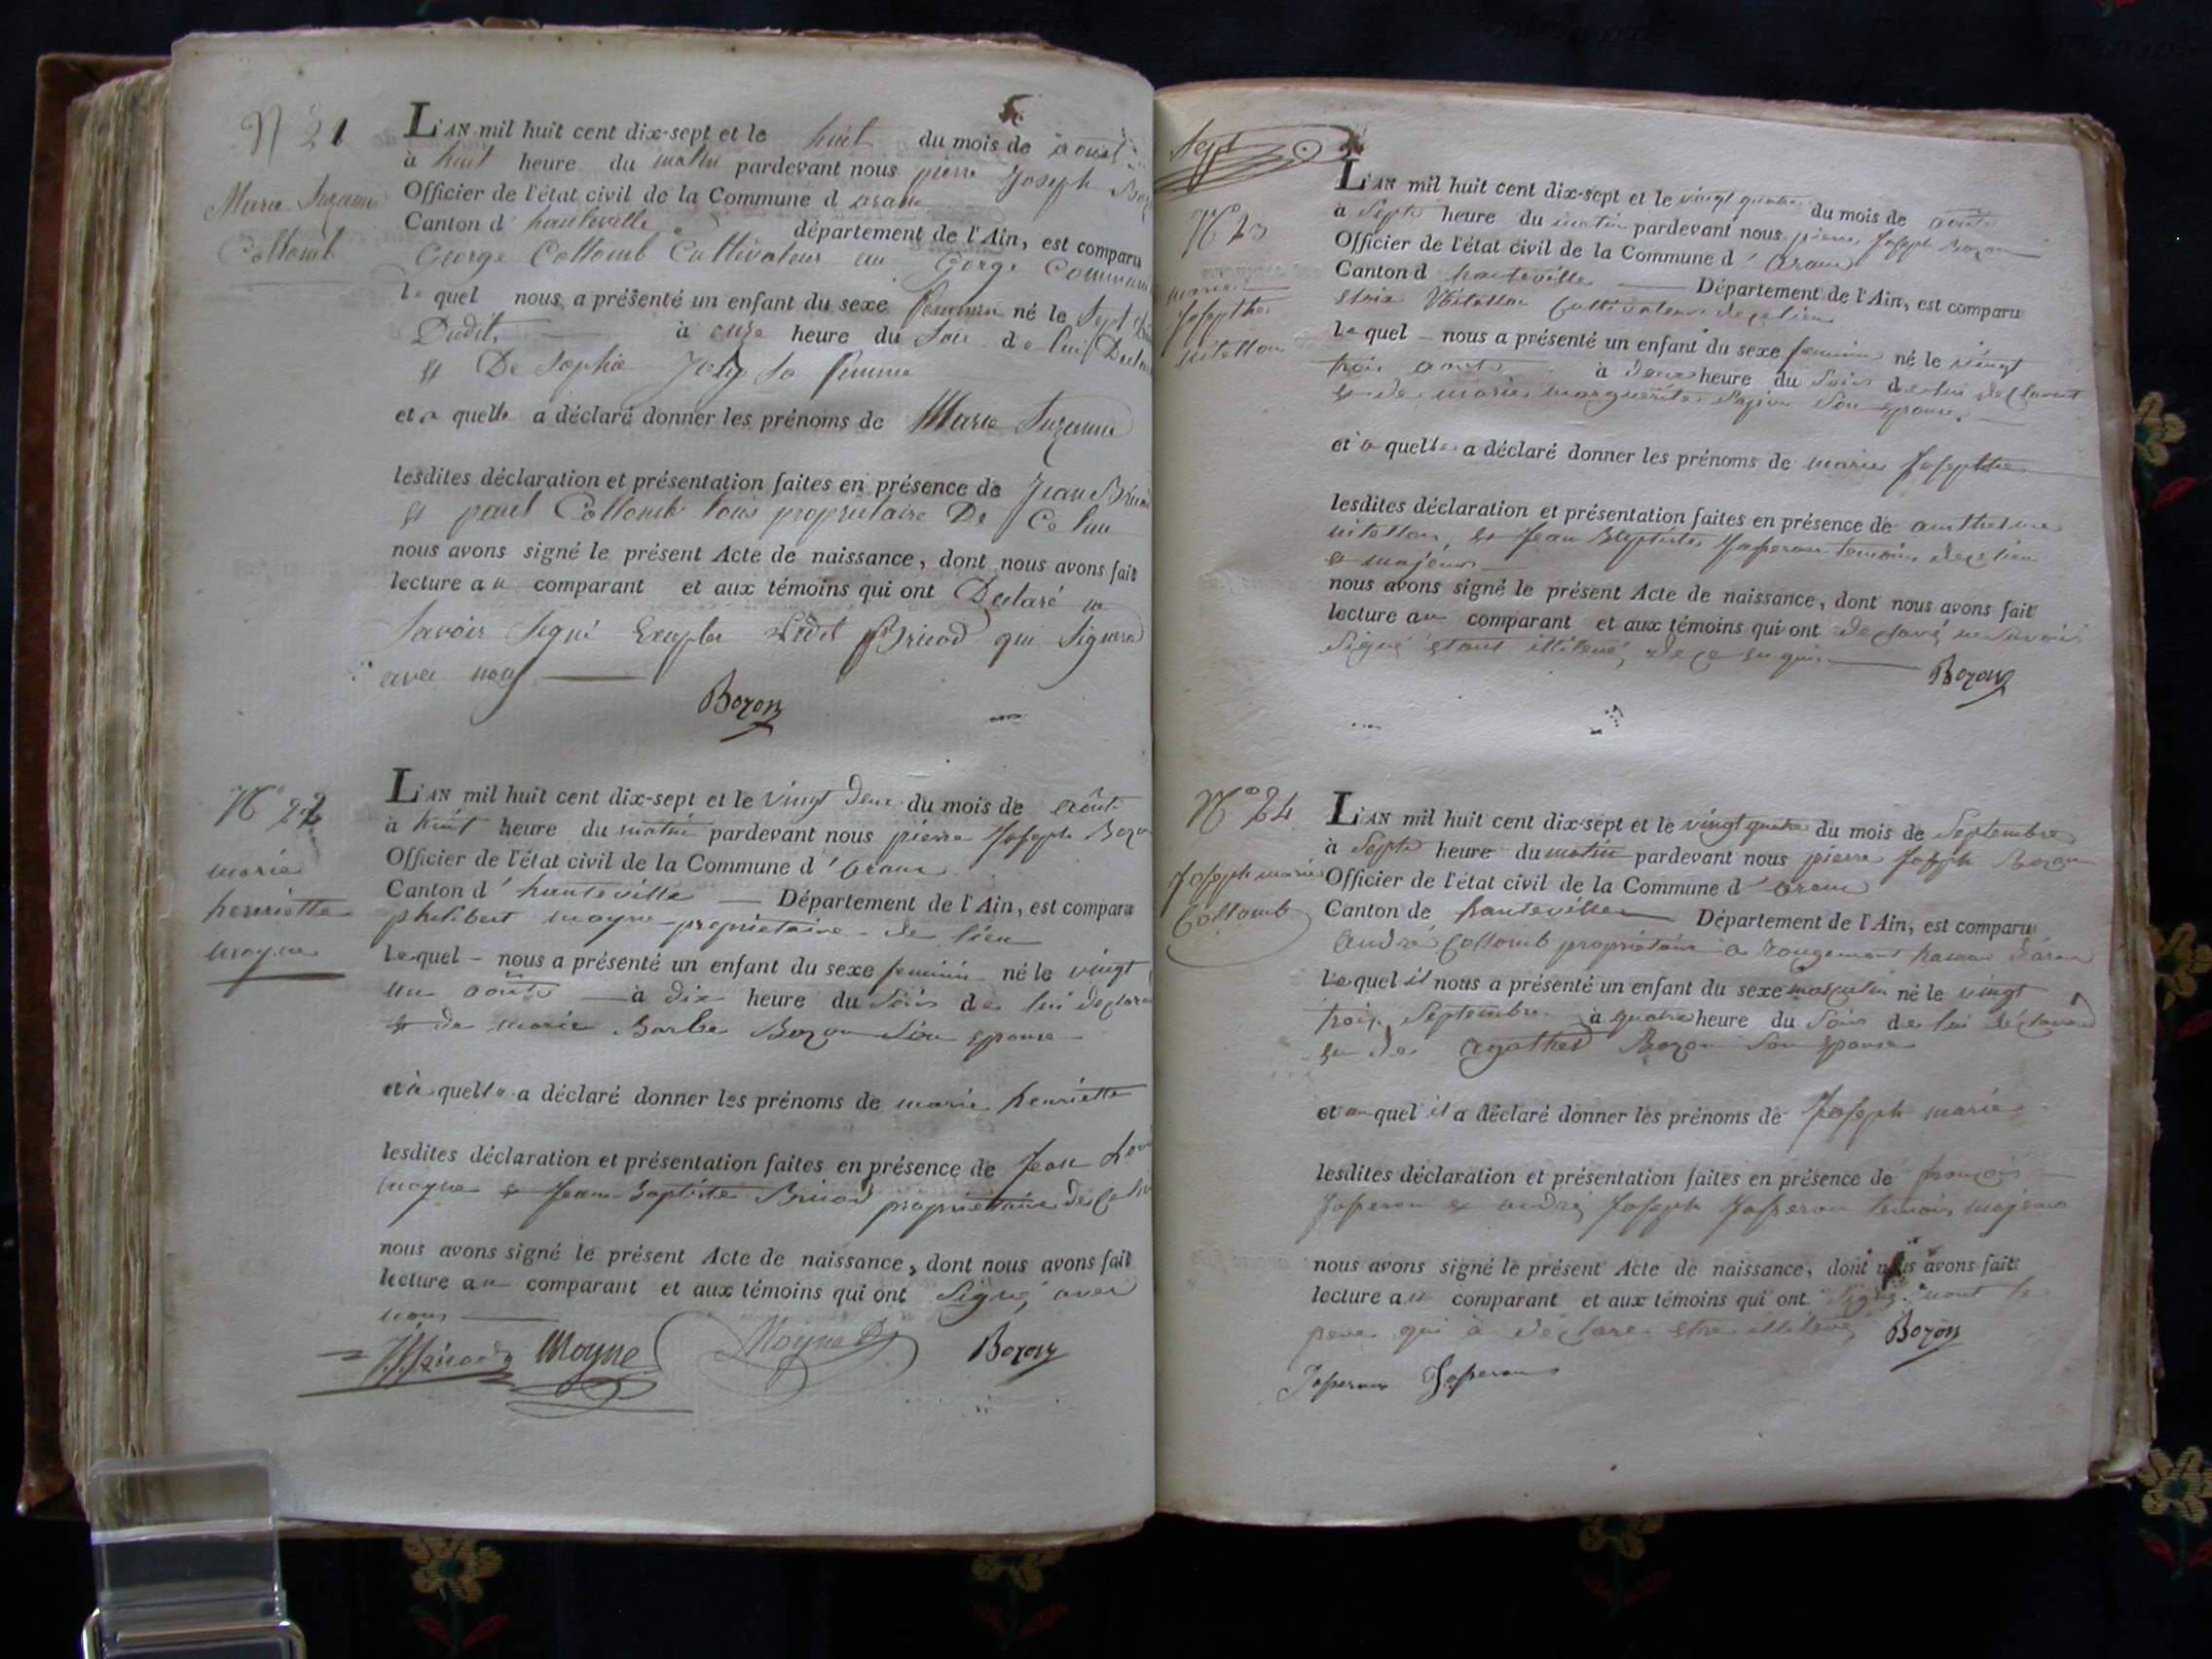 N° 21
Marie Suzanne
Collomb
L'AN mil huit cent dix-sept et le huit du mois de aoust
à huit heure du matin pardevant nous pierre Joseph
Officier de l'état civil de la Commune d aran
Canton d' hauteville département de l'Ain, est comparu
George Collomb Cultivateur au Gorge
le quel nous a présenté un enfant du sexe feminin né le Sept
Dudit à onze heure du Soir de lui
et De Sophie Joly Sa femme
et a quelle a déclaré donner les prénoms de Marie Suzanne
lesdites déclaration et présentation faites en présence de Jean
et paul Collomb tous proprietaire De Ce lieu
nous avons signé le présent Acte de naissance, dont nous avons fait
lecture au comparant et aux témoins qui ont Declaré ne
Savoir Signé Exepter Ledit Brinod qui Signera
avec nous
Bozon
N° 22
marie
henriette
moyne
L'AN mil huit cent dix-sept et le vingt deux du mois de août
à huit heure du matin pardevant nous pierre Joseph
Officier de l'état civil de la Commune d' aran
Canton d' hauteville Département de l'Ain, est comparu
philibert moyne proprietaire de lieu
lequel nous a présenté un enfant du sexe feminin né le vingt
un août à dix heure du Soir de lui
et de marie Barbe Bozon Son epouse
et à quelle a déclaré donner les prénoms de marie henriette
lesdites déclaration et présentation faites en présence de Jean
moyne et Jean Baptiste Brinod proprietaire de
nous avons signé le présent Acte de naissance, dont nous avons fait
lecture au comparant et aux témoins qui ont Signé avec
nous
Moyne Moyne Bozon
Sept
N° 23
marie
Josephte
vitellon
L'AN mil huit cent dix-sept et le vingt quatre du mois de août
à Sept heure du matin pardevant nous pierre Joseph Bozon
Officier de l'état civil de la Commune d' aran
Canton d hauteville Département de l'Ain, est comparu
Vitellon Cultivateur de ce lieu
le quel nous a présenté un enfant du sexe feminin né le vingt
trois août à deux heure du Soir de lui declarant
et de marie marguerite Son epouse
et a quelle a déclaré donner les prénoms de marie Josephte
lesdites déclaration et présentation faites en présence de anthelme
vitellon et Jean Baptiste Jasseron temoins de ce lieu
et majeurs
nous avons signé le présent Acte de naissance, dont nous avons fait
lecture au comparant et aux témoins qui ont declaré ne Savoir
Signé etant illiteré, de ce enquis
Bozon
N° 24
Joseph marie
Collomb
L'AN mil huit cent dix-sept et le vingt quatre du mois de Septembre
à Sept heure du matin pardevant nous pierre Joseph Bozon
Officier de l'état civil de la Commune d' aran
Canton de hauteville Département de l'Ain, est comparu
André Collomb proprietaire a rougemont hamau d'aran
Lequel il nous a présenté un enfant du sexe masculin né le vingt
trois Septembre à quatre heure du Soir de lui déclarant
et de Agathe Bozon Son epouse
et au quel il a déclaré donner les prénoms de Joseph marie
lesdites déclaration et présentation faites en présence de françois
Jasseron et andré Joseph Jasseron temoins majeurs
nous avons signé le présent Acte de naissance, dont nous avons fait
lecture au comparant et aux témoins qui ont Signé non le
pere qui à déclaré etre illiteré
Bozon
Jasseron Jasseron